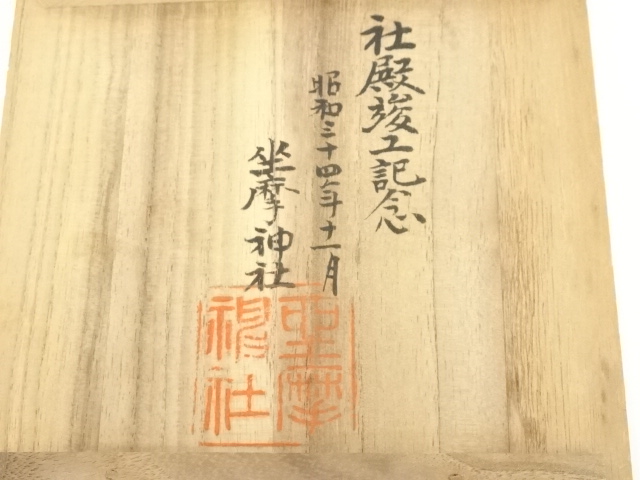 社殿竣工記念
昭和三十四年十一月
坐摩神社
坐摩
神社